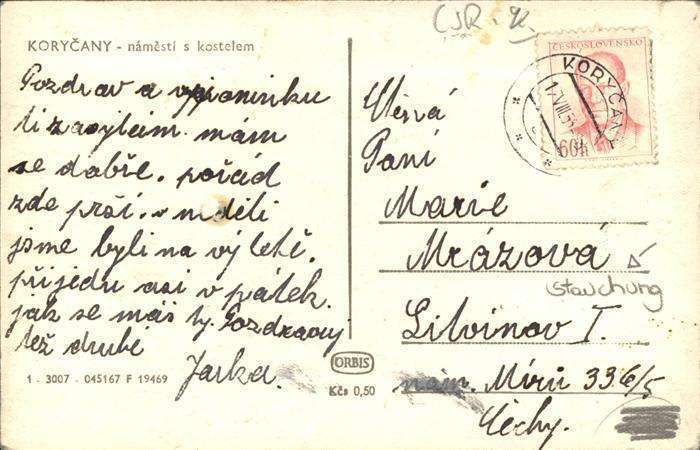 ČSR - 92
KORYČANY - náměstí s kostelem
Pozdrav a vzpomínku
ti zasylám. mám
se dobře. pořád
zde prší. v neděli
jsme byli na výletě.
přijedu asi v pátek.
jak se máš ty. Pozdravuj
též druhé
Jarka.
1 - 3007 - 045167 F 19469
ORBIS
Kčs 0,50
ČESKOSLOVENSKO
KORYČANY
60h
Paní
Marie
Mrázová
Stauchung
Litvínov I.
nám. Míru 336/5
Čechy.